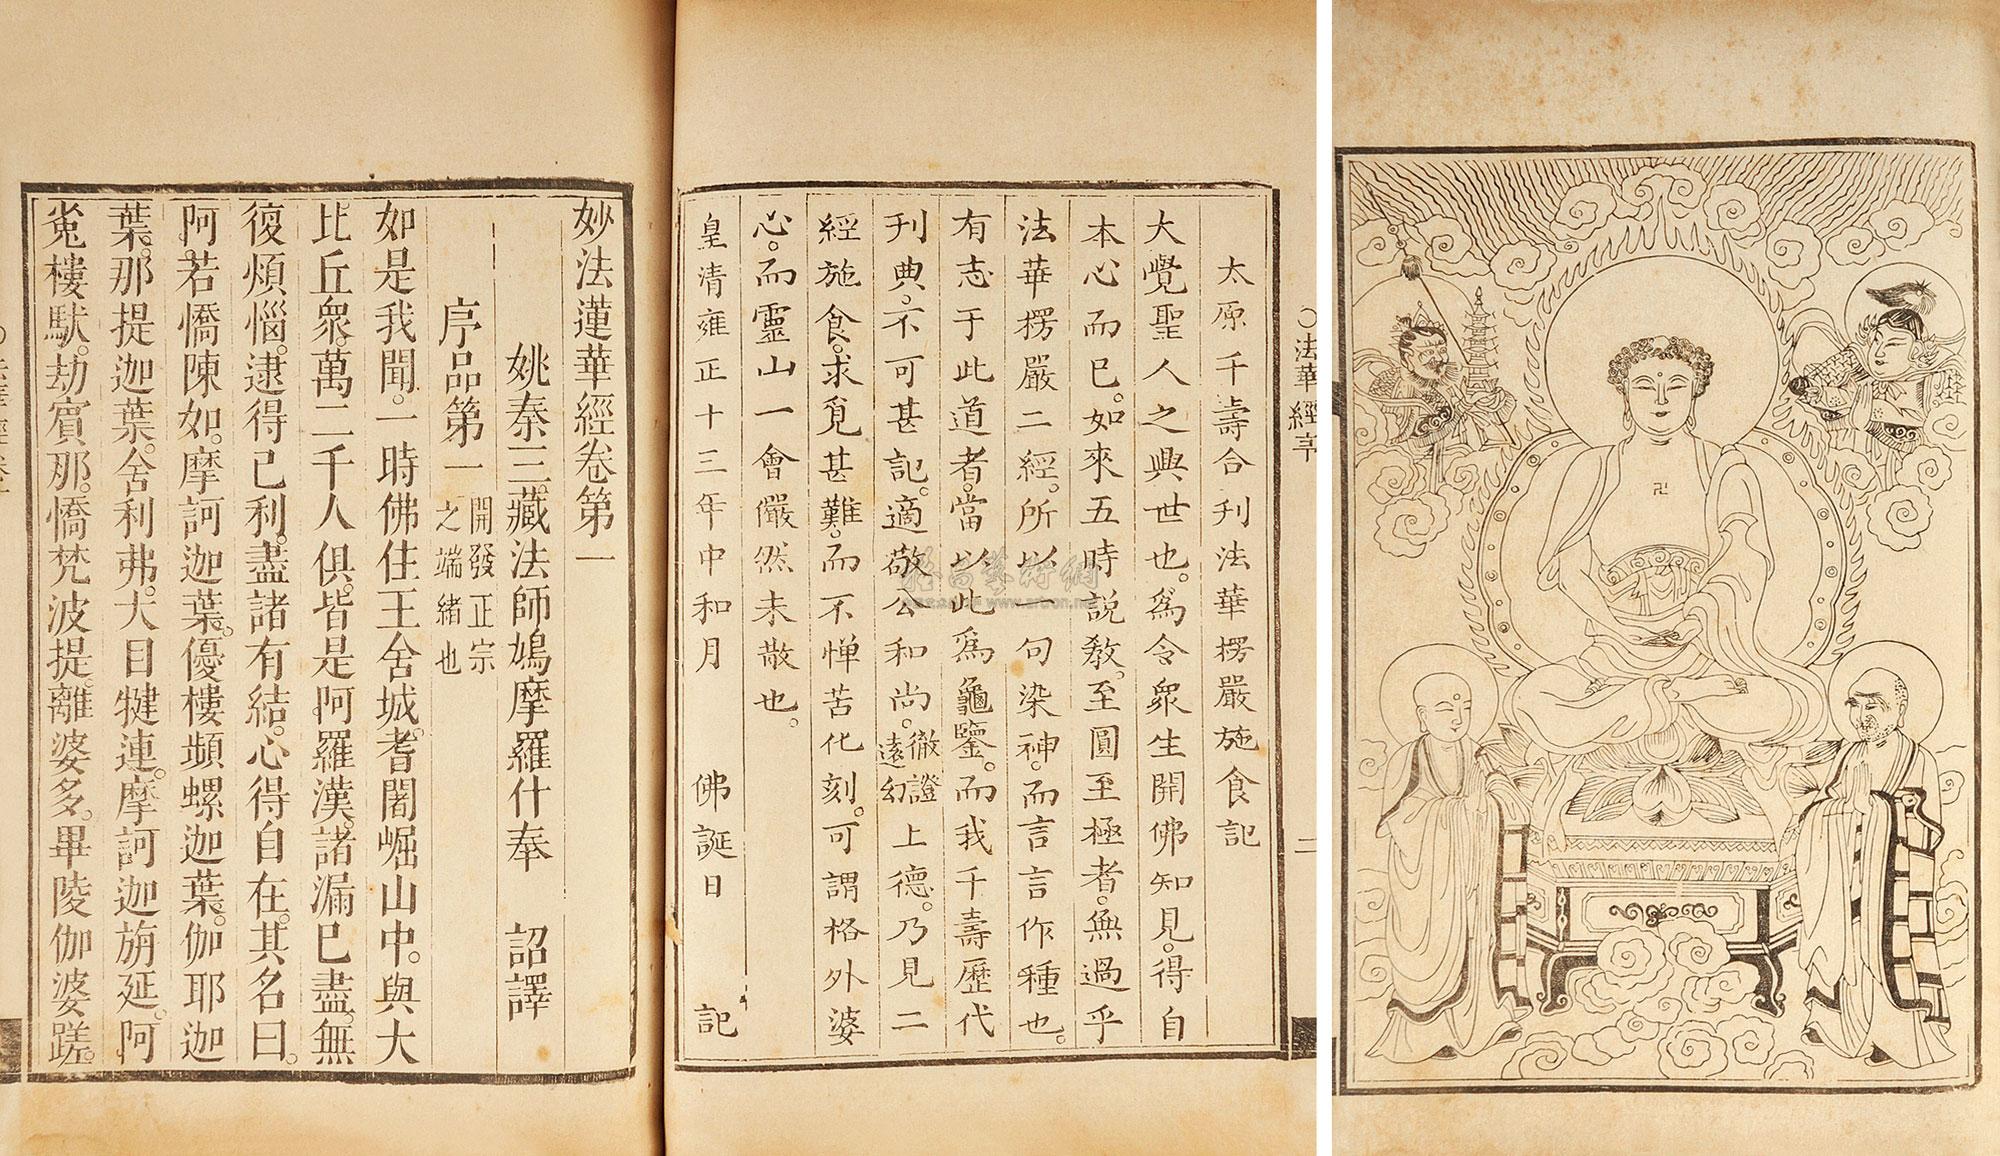 太原千壽合刊法華楞嚴施食記
大覺聖人之興世也。爲令衆生開佛知見。得自
本心而已。如來五時説教。至圓至極者。無過乎
法華楞嚴二經。所以一句染神。而言言作種也。
有志于此道者。當以此爲龜鑒。而我千壽歷代
刊典。不可甚記。適敬公和尚。徹證遠幻上德。乃見二
經施食。求覓甚難。而不惮苦化刻。可謂格外婆
心。而靈山一會儼然未散也。
皇清雍正十三年中和月 佛誕日 記
法華經序
二
妙法蓮華經卷第一
姚秦三藏法師鳩摩羅什奉 詔譯
序品第一 開發正宗之端緒也
如是我聞。一時佛住王舍城。耆闍崛山中。與大
比丘衆。萬二千人俱。皆是阿羅漢。諸漏已盡。無
復煩惱。逮得己利。盡諸有結。心得自在。其名曰。
阿若憍陳如。摩訶迦葉。優樓頻螺迦葉。伽耶迦
葉。那提迦葉。舍利弗。大目犍連。摩訶迦旃延。阿
㝹樓馱。劫賓那。憍梵波提。離婆多。畢陵伽婆蹉。
卍
www.artron.net